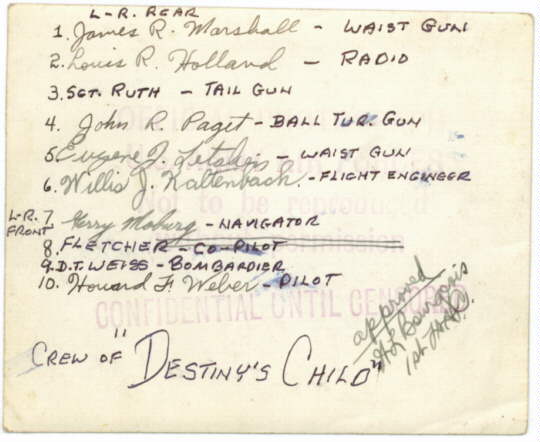 L-R. REAR
1. James R. Marshall - WAIST GUN
2. Louis R. Holland - RADIO
3. SGT. RUTH - TAIL GUN
4. John R. Paget - BALL TUR. GUN
5. Eugene J. - WAIST GUN
6. Willis J. Kaltenbach. - FLIGHT ENGINEER
Not to be reproduced
L-R. 7. Moburg - NAVIGATOR
FRONT
8. FLETCHER - CO-PILOT
permission
9. D.T. WEISS - BOMBARDIER
10. Howard F. Weber - PILOT
CONFIDENTIAL UNTIL CENSORED
approved
1st
CREW OF "DESTINY'S CHILD"